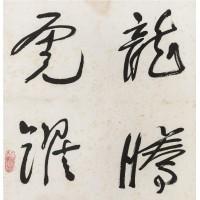 龍騰
虎躍